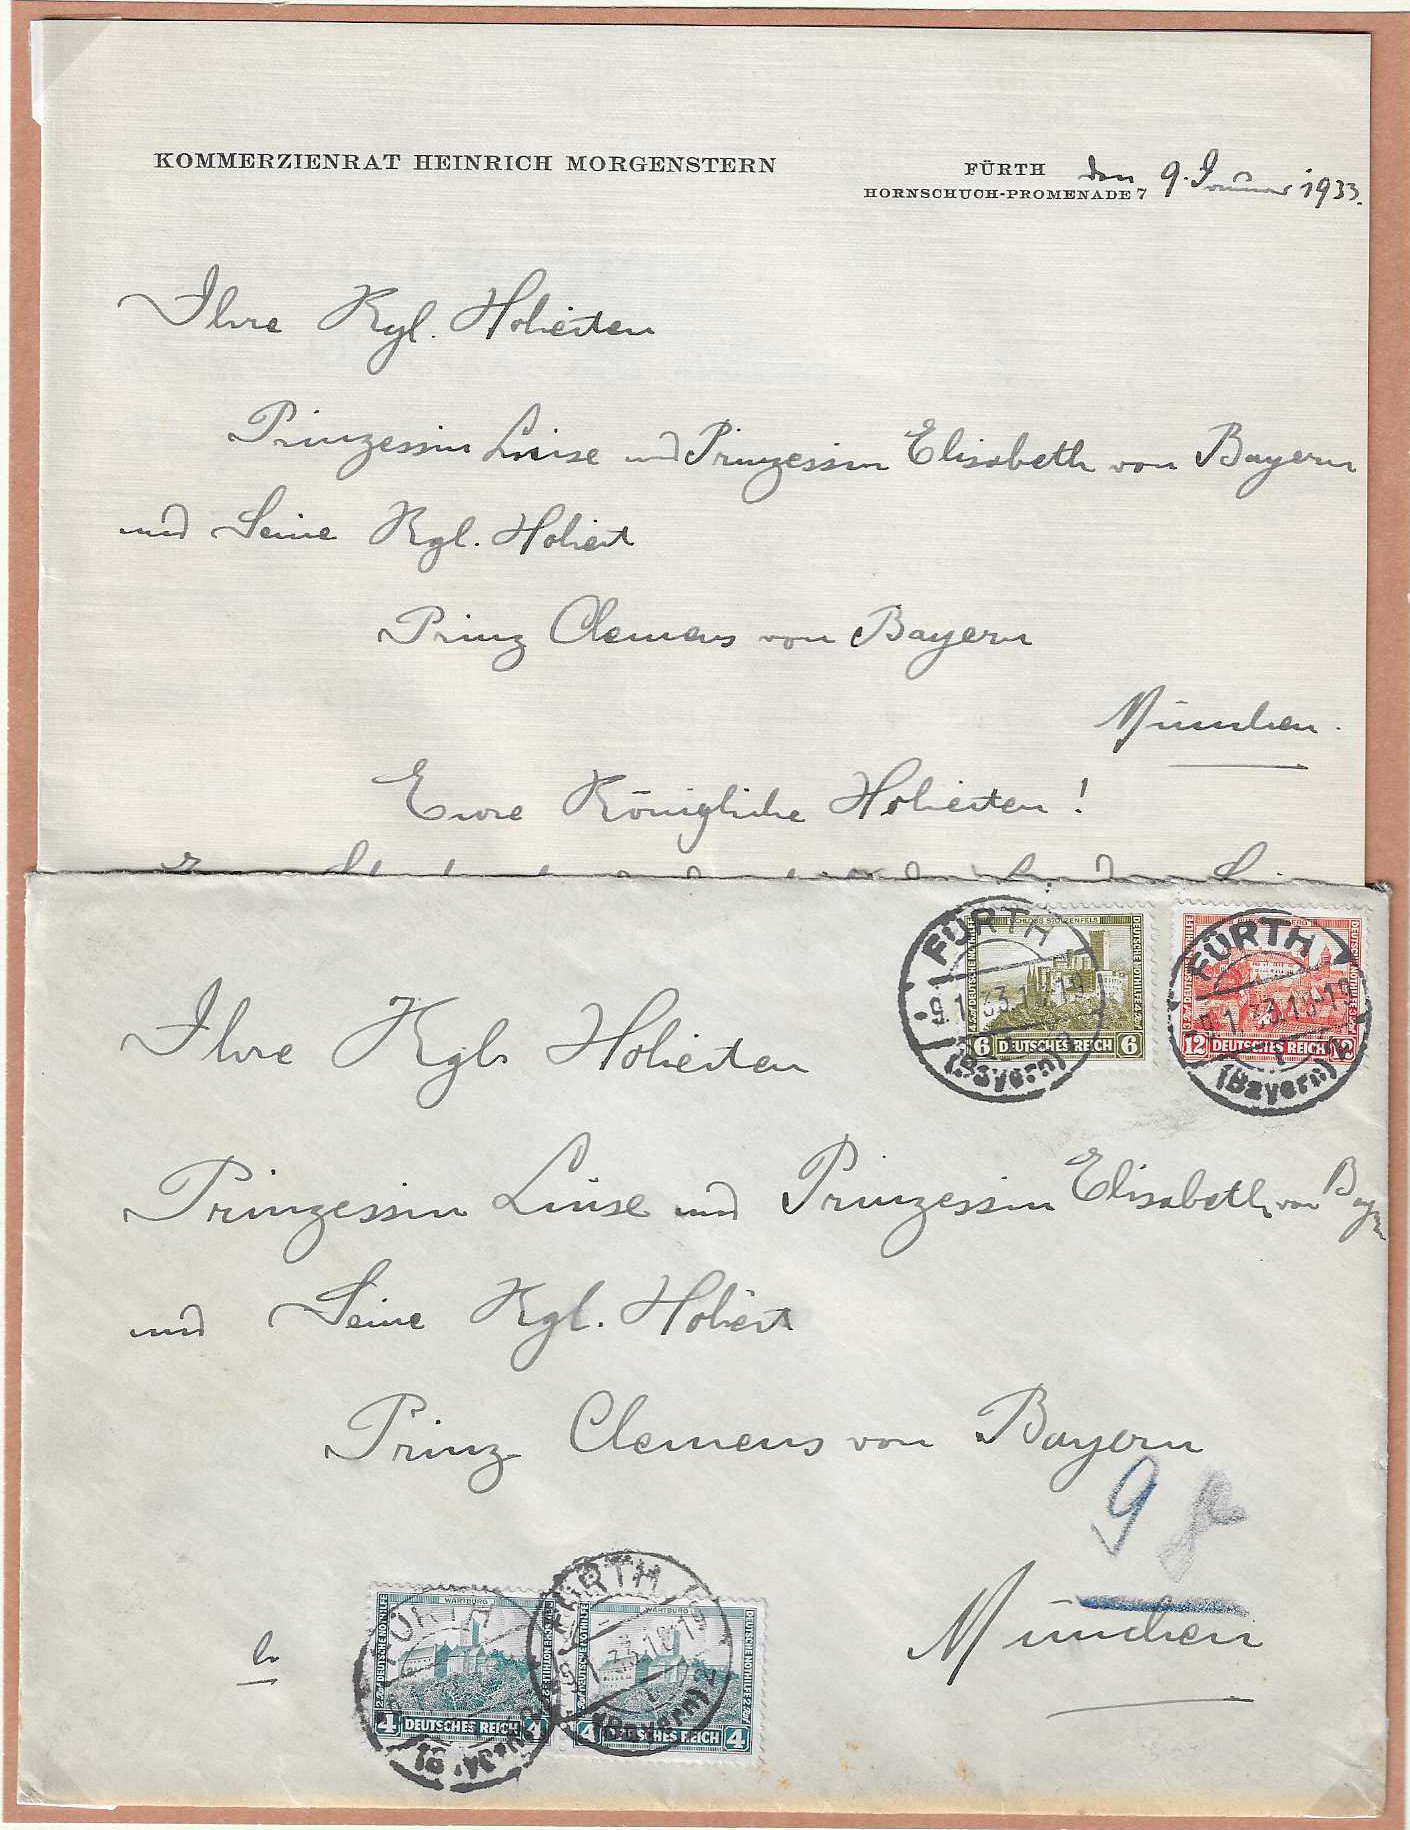 KOMMERZIENRAT HEINRICH MORGENSTERN
FÜRTH den 9. Januar 1933.
HORNSCHUCH-PROMENADE 7
Ihre Kgl. Hoheiten
Prinzessin Luise und Prinzessin Elisabeth von Bayern
und Seine Kgl. Hoheit
Prinz Clemens von Bayern
München.
Eure Königliche Hoheiten!
SCHLOSS STOLZENFELS
DEUTSCHE NOTHILFE
6 DEUTSCHES REICH 6
FÜRTH
9.1.33.18-19
(Bayern) 2
DEUTSCHE NOTHILFE
12 DEUTSCHES REICH 12
FÜRTH
9.1.33.18-19
(Bayern) 2
Ihre Kgl. Hoheiten
Prinzessin Luise und Prinzessin Elisabeth von Bayern
und Seine Kgl. Hoheit
Prinz Clemens von Bayern
9
München
WARTBURG
DEUTSCHE NOTHILFE
4 DEUTSCHES REICH 4
FÜRTH
(Bayern)
WARTBURG
DEUTSCHE NOTHILFE
4 DEUTSCHES REICH 4
FÜRTH
9.1.33.18-19
(Bayern) 2